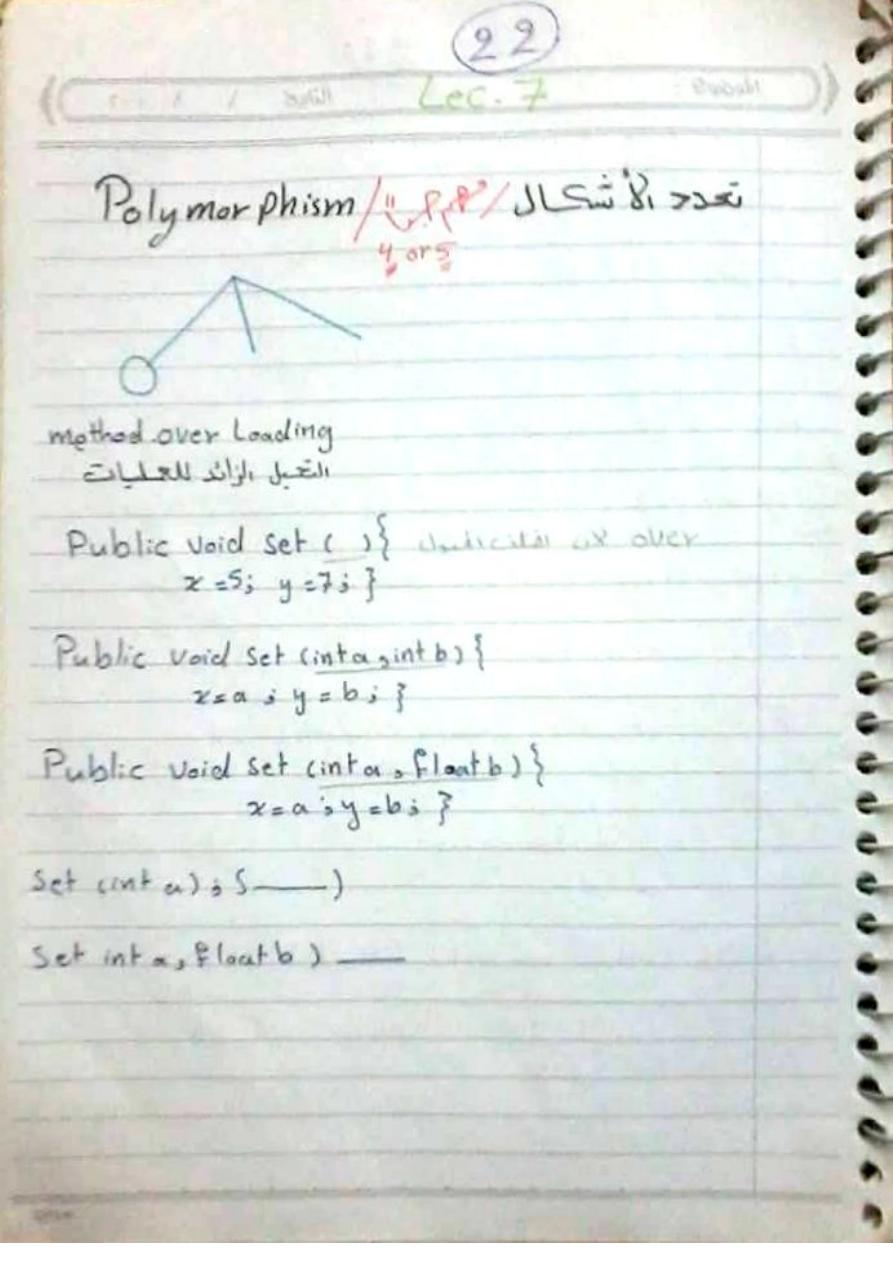 22
Lec. 7
Polymorphism / / تعدد الأشكال
4 or 5
method over Loading
التحميل الزائد للعمليات
Public void set ( ){ over
x=5; y=7; }
Public void set (int a, int b) {
x=a ; y=b; }
Public void set (int a, float b) }
x=a ; y=b; }
Set (int a) ; { )
Set int a, float b )